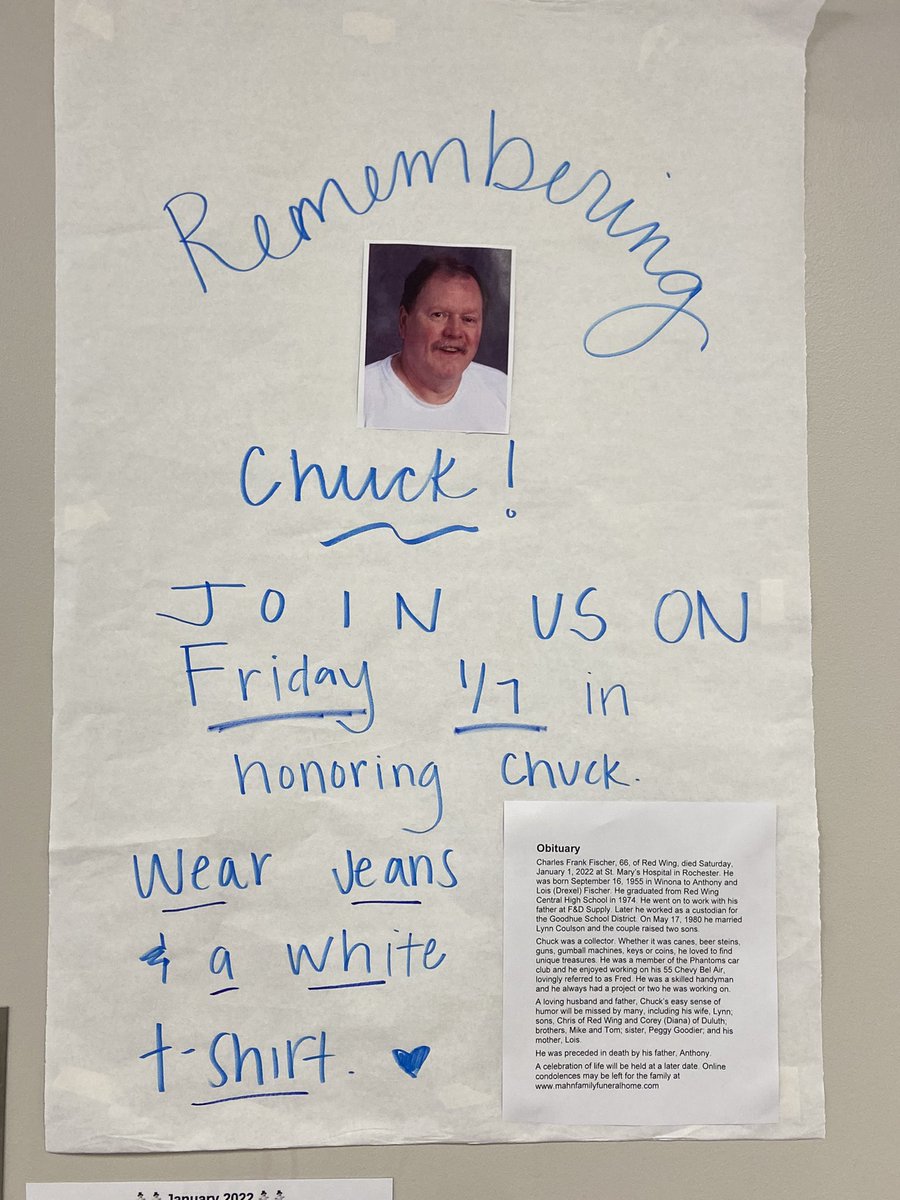 Remembering
Chuck!
JOIN US ON
Friday 1/7 in
honoring Chuck.
Wear Jeans
& a white
t-shirt.
Obituary
Charles Frank Fischer, 66, of Red Wing, died Saturday,
January 1, 2022 at St. Mary's Hospital in Rochester. He
was born September 16, 1955 in Winona to Anthony and
Lois (Drexel) Fischer. He graduated from Red Wing
Central High School in 1974. He went on to work with his
father at F&D Supply. Later he worked as a custodian for
the Goodhue School District. On May 17, 1980 he married
Lynn Coulson and the couple raised two sons.
Chuck was a collector. Whether it was canes, beer steins,
guns, gumball machines, keys or coins, he loved to find
unique treasures. He was a member of the Phantoms car
club and he enjoyed working on his 55 Chevy Bel Air,
lovingly referred to as Fred. He was a skilled handyman
and he always had a project or two he was working on.
A loving husband and father, Chuck's easy sense of
humor will be missed by many, including his wife, Lynn;
sons, Chris of Red Wing and Corey (Diana) of Duluth;
brothers, Mike and Tom; sister, Peggy Goodier; and his
mother, Lois.
He was preceded in death by his father, Anthony.
A celebration of life will be held at a later date. Online
condolences may be left for the family at
www.mahnfamilyfuneralhome.com
January 2022